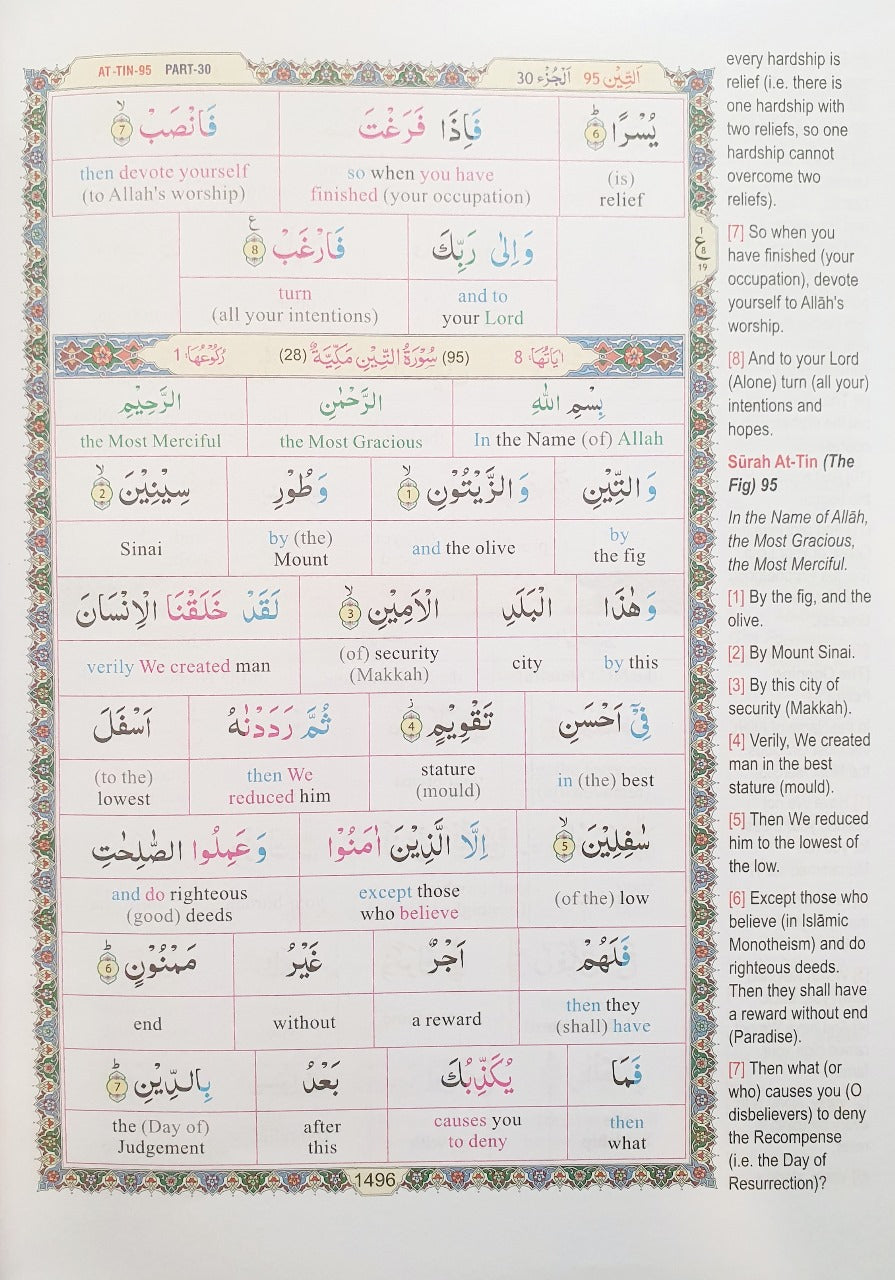 AT-TIN-95 PART-30
اَلتِّيْن 95 اَلْجُزْء 30
يُسْرًا ؕ 6 فَاِذَا فَرَغْتَ فَانْصَبْ ۙ 7
(is) relief
so when you have finished (your occupation)
then devote yourself (to Allah's worship)
وَ اِلٰى رَبِّكَ فَارْغَبْ 8 ع
and to your Lord
turn (all your intentions)
1
ع
8
19
اٰيَاتُهَا: 8 (95) سُوْرَةُ التِّيْنِ مَكِّيَّةٌ (28) رُكُوْعُهَا: 1
بِسْمِ اللّٰهِ الرَّحْمٰنِ الرَّحِيْمِ
In the Name (of) Allah
the Most Gracious
the Most Merciful
وَ التِّيْنِ وَ الزَّيْتُوْنِ ۙ 1 وَ طُوْرِ سِيْنِيْنَ ۙ 2
by the fig
and the olive
by (the) Mount
Sinai
وَ هٰذَا الْبَلَدِ الْاَمِيْنِ ۙ 3 لَقَدْ خَلَقْنَا الْاِنْسَانَ
by this
city
(of) security (Makkah)
verily We created man
فِيْۤ اَحْسَنِ تَقْوِيْمٍ ؗ 4 ثُمَّ رَدَدْنٰهُ اَسْفَلَ
in (the) best
stature (mould)
then We reduced him
(to the) lowest
سٰفِلِيْنَ ۙ 5 اِلَّا الَّذِيْنَ اٰمَنُوْا وَ عَمِلُوا الصّٰلِحٰتِ
(of the) low
except those who believe
and do righteous (good) deeds
فَلَهُمْ اَجْرٌ غَيْرُ مَمْنُوْنٍ ؕ 6
then they (shall) have
a reward
without
end
فَمَا يُكَذِّبُكَ بَعْدُ بِالدِّيْنِ ؕ 7
then what
causes you to deny
after this
the (Day of) Judgement
1496
every hardship is
relief (i.e. there is
one hardship with
two reliefs, so one
hardship cannot
overcome two
reliefs).
[7] So when you
have finished (your
occupation), devote
yourself to Allāh's
worship.
[8] And to your Lord
(Alone) turn (all your)
intentions and
hopes.
Sūrah At-Tin (The
Fig) 95
In the Name of Allāh,
the Most Gracious,
the Most Merciful.
[1] By the fig, and the
olive.
[2] By Mount Sinai.
[3] By this city of
security (Makkah).
[4] Verily, We created
man in the best
stature (mould).
[5] Then We reduced
him to the lowest of
the low.
[6] Except those who
believe (in Islāmic
Monotheism) and do
righteous deeds.
Then they shall have
a reward without end
(Paradise).
[7] Then what (or
who) causes you (O
disbelievers) to deny
the Recompense
(i.e. the Day of
Resurrection)?